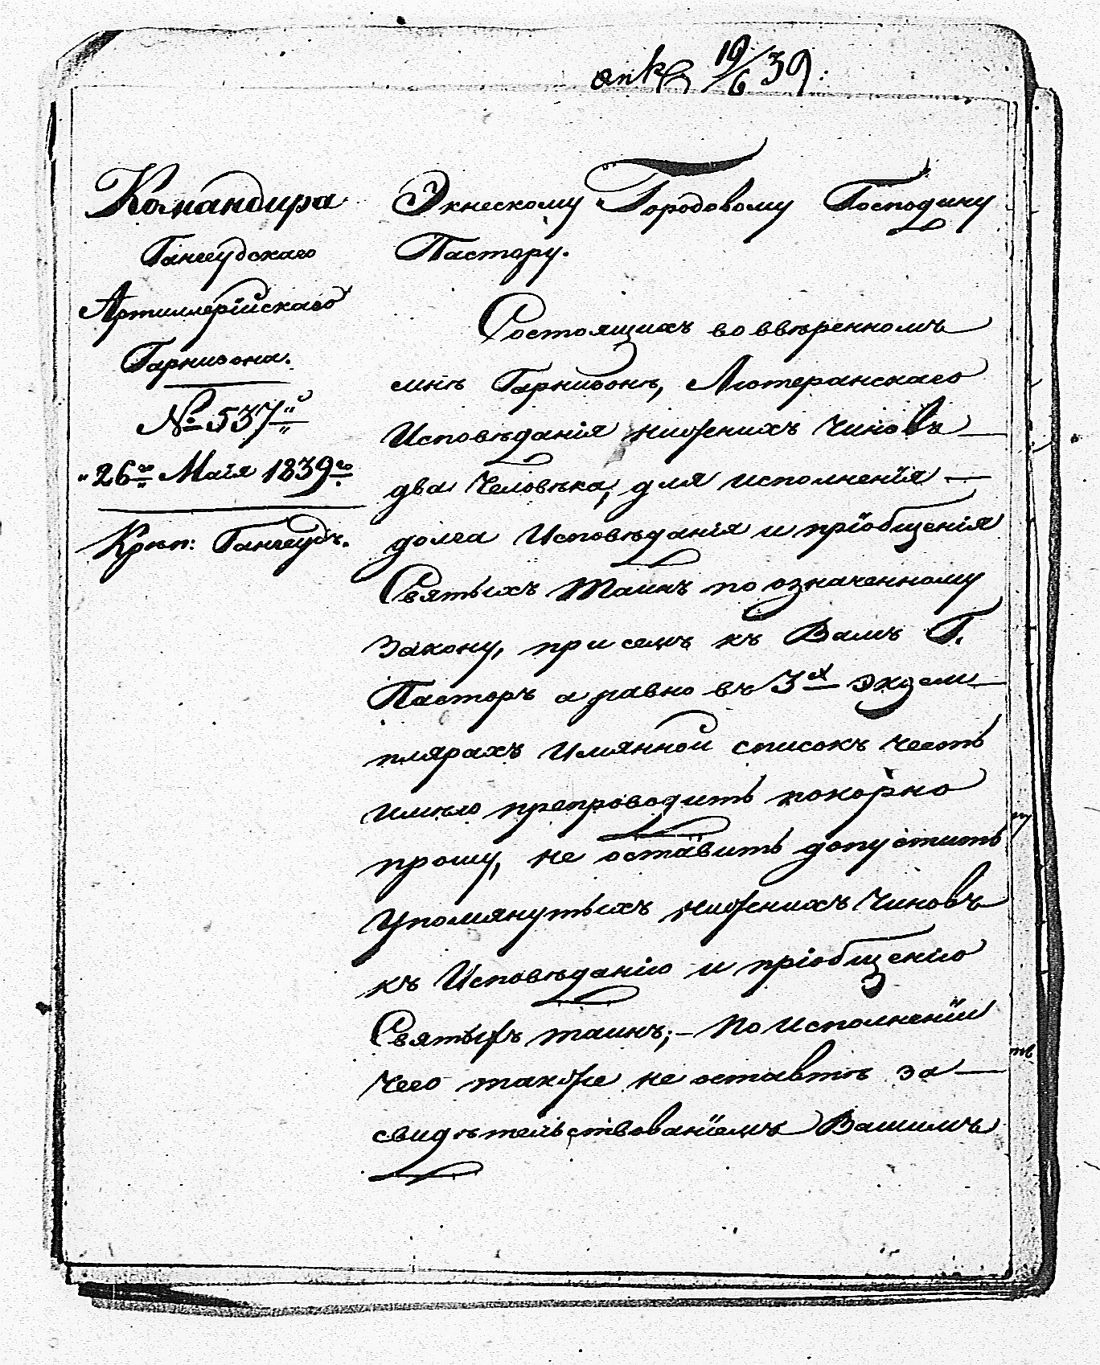 ank 19/6 39:
Командира
Гангеудскаго
Артиллерійскаго
Гарнизона.
№ 537й
"26го Маія 1839го
Креп: Гангеудъ.
Экнескому Городовому Господину
Пастору.
Состоящихъ во ввѣренномъ
мнѣ Гарнизонѣ, Лютеранскаго
Исповѣданія нижнихъ чиновъ
два человѣка, для исполненія —
долга Исповѣданія и пріобщенія
Святыхъ Таинъ по означенному
закону, при семъ къ Вамъ Г.
Пасторъ а равно въ 3х экзем—
плярахъ имянной списокъ честь
имѣю препроводить покорно
прошу, не оставить допустить
упомянутыхъ нижнихъ чиновъ
къ Исповѣданію и пріобщенію
Святыхъ таинъ; — по исполненіи
чего также не оставте за—
свидѣтельствованіемъ Вашимъ